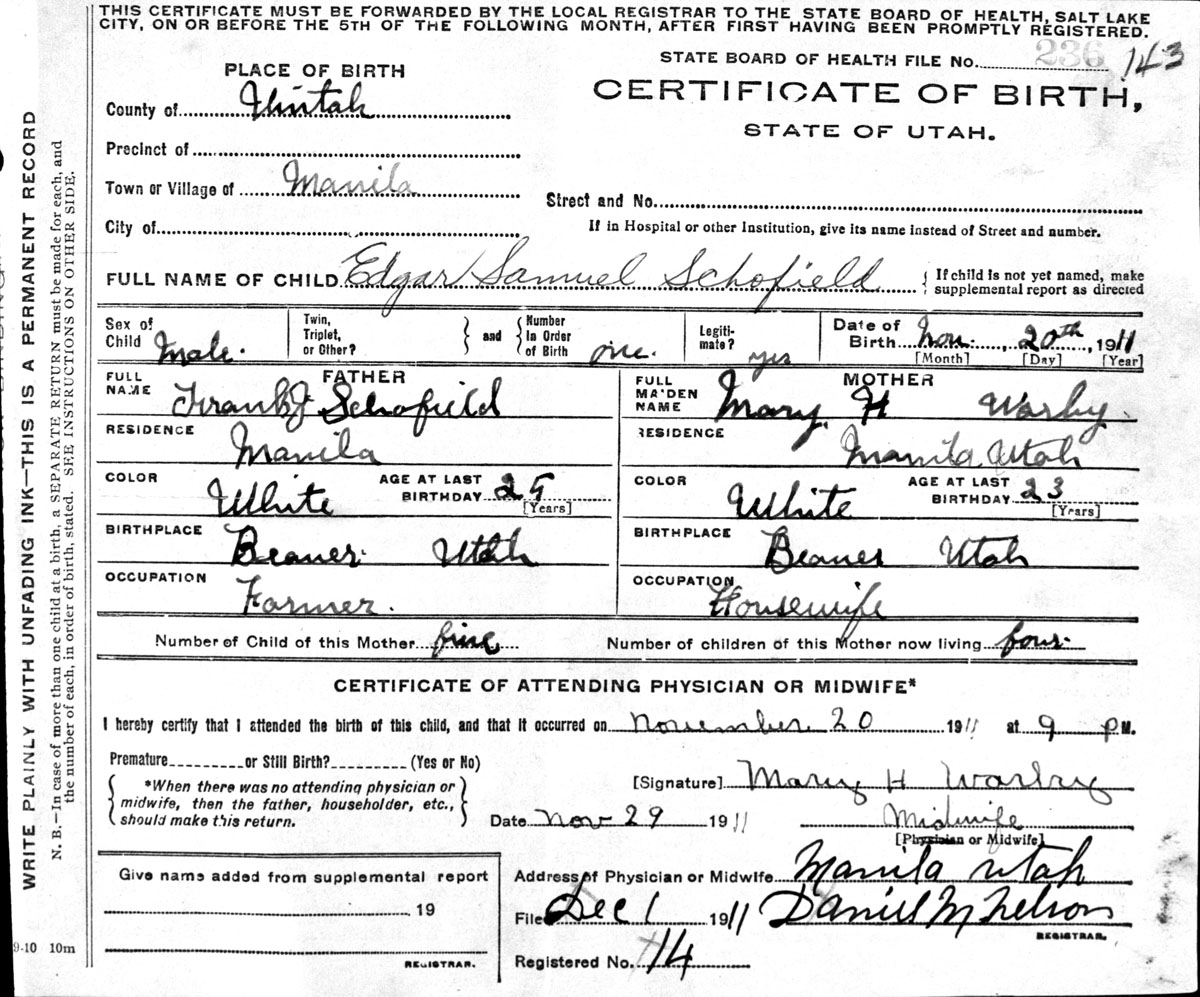 THIS CERTIFICATE MUST BE FORWARDED BY THE LOCAL REGISTRAR TO THE STATE BOARD OF HEALTH, SALT LAKE
CITY, ON OR BEFORE THE 5TH OF THE FOLLOWING MONTH, AFTER FIRST HAVING BEEN PROMPTLY REGISTERED.
STATE BOARD OF HEALTH FILE No. 236 143
PLACE OF BIRTH
CERTIFICATE OF BIRTH,
STATE OF UTAH.
County of Uintah
Precinct of
Town or Village of Manila
Street and No.
City of
If in Hospital or other Institution, give its name instead of Street and number.
FULL NAME OF CHILD Edgar Samuel Schofield { If child is not yet named, make
supplemental report as directed
Sex of Child Male.
Twin, Triplet, or Other? } and { Number in Order of Birth one.
Legiti-mate? yes
Date of Birth Nov. 20th, 1911
[Month] [Day] [Year]
FATHER
FULL NAME Frank J Schofield
MOTHER
FULL MAIDEN NAME Mary H Warby.
RESIDENCE Manila
RESIDENCE Manila Utah
COLOR White AGE AT LAST BIRTHDAY 25 [Years]
COLOR White AGE AT LAST BIRTHDAY 23 [Years]
BIRTHPLACE Beaver Utah
BIRTHPLACE Beaver Utah
OCCUPATION Farmer.
OCCUPATION Housewife
Number of Child of this Mother five
Number of children of this Mother now living four
CERTIFICATE OF ATTENDING PHYSICIAN OR MIDWIFE*
I hereby certify that I attended the birth of this child, and that it occurred on November 20 1911 at 9 P M.
Premature or Still Birth? (Yes or No)
{ *When there was no attending physician or
midwife, then the father, householder, etc.,
should make this return. }
[Signature] Mary H Warby
Date Nov 29 1911 Midwife
[Physician or Midwife]
Give name added from supplemental report
19
REGISTRAR.
Address of Physician or Midwife Manila Utah
Filed Dec 1 1911 Daniel M Nelson
REGISTRAR.
Registered No. 14
9-10 10m
WRITE PLAINLY WITH UNFADING INK—THIS IS A PERMANENT RECORD
N. B.—In case of more than one child at a birth, a SEPARATE RETURN must be made for each, and
the number of each, in order of birth, stated. SEE INSTRUCTIONS ON OTHER SIDE.